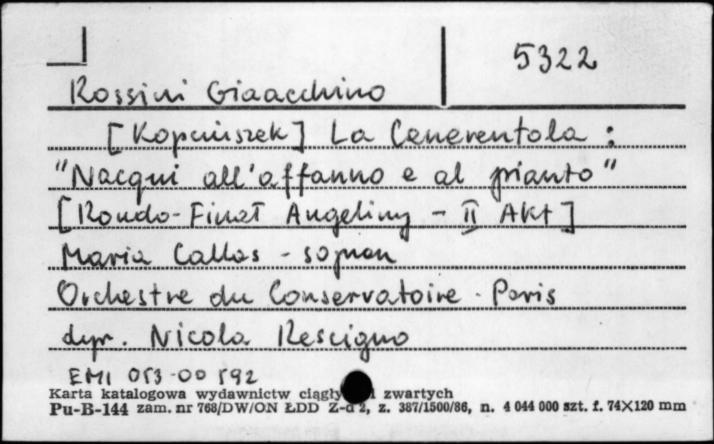 5322
Rossini Giaacchino
[Kopciuszek] La Cenerentola :
"Nacqui all'affanno e al pianto"
[Rondo-Finał Angeliny – II Akt]
Maria Callas - sopran
Orchestre du Conservatoire - Paris
dyr. Nicola Rescigno
EMI 053-00 592
Karta katalogowa wydawnictw ciągły i zwartych
Pu-B-144 zam. nr 768/DW/ON ŁDD Z-d 2, z. 387/1500/86, n. 4 044 000 szt. f. 74×120 mm